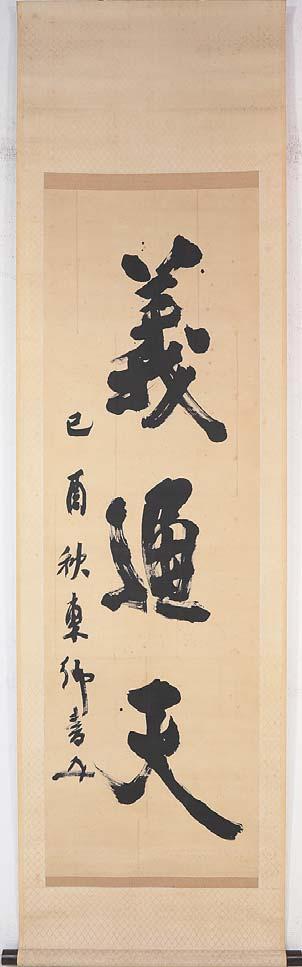 義通天
己酉秋東郷書